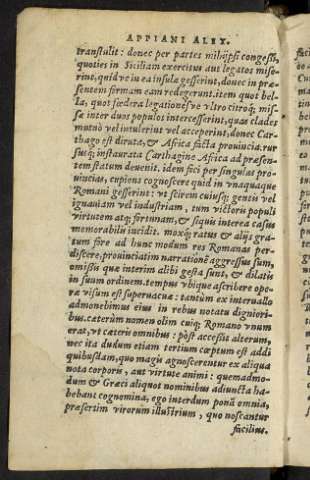 APPIANI ALEX.
transtulit: donec per partes mihijpsi congessi,
quoties in Siciliam exercitus aut legatos mise-
rint, quid ve in ea insula gesserint, donec in præ-
sentem formam eam redegerunt. item quot bel-
la, quot fœdera legationes'ue vltro citroq; mis-
sæ inter duos populos intercesserint, quas clades
mutuò vel intulerint vel acceperint, donec Car-
thago est diruta, & Africa facta prouincia. rur
susq; instaurata Carthagine Africa ad præsen-
tem statum deuenit. idem feci per singulas pro-
uincias, cupiens cognoscere quid in vnaquaque
Romani gesserint: vt scirem cuiusq; gentis vel
ignauiam vel industriam, tum victoris populi
virtutem atq; fortunam, & siquis interea casus
memorabilis incidit. moxq; ratus & alijs gra-
tum fore ad hunc modum res Romanas per-
discere, prouinciatim narrationẽ aggressus sum,
omissis quæ interim alibi gesta sunt, & dilatis
in suum ordinem. tempus vbique ascribere ope-
ræ visum est superuacuæ: tantùm ex interuallo
admonebimus eius in rebus notatu digniori-
bus. cæterùm nomen olim cuiq; Romano vnum
erat, vt cæteris omnibus: pòst accessit alterum,
nec ita dudum etiam tertium cœptum est addi
quibusdam, quo magis agnoscerentur ex aliqua
nota corporis, aut virtute animi: quemadmo-
dum & Græci aliquot nominibus adiuncta ha-
bebant cognomina. ego interdum ponã omnia,
præsertim virorum illustrium, quo noscantur
facilius.